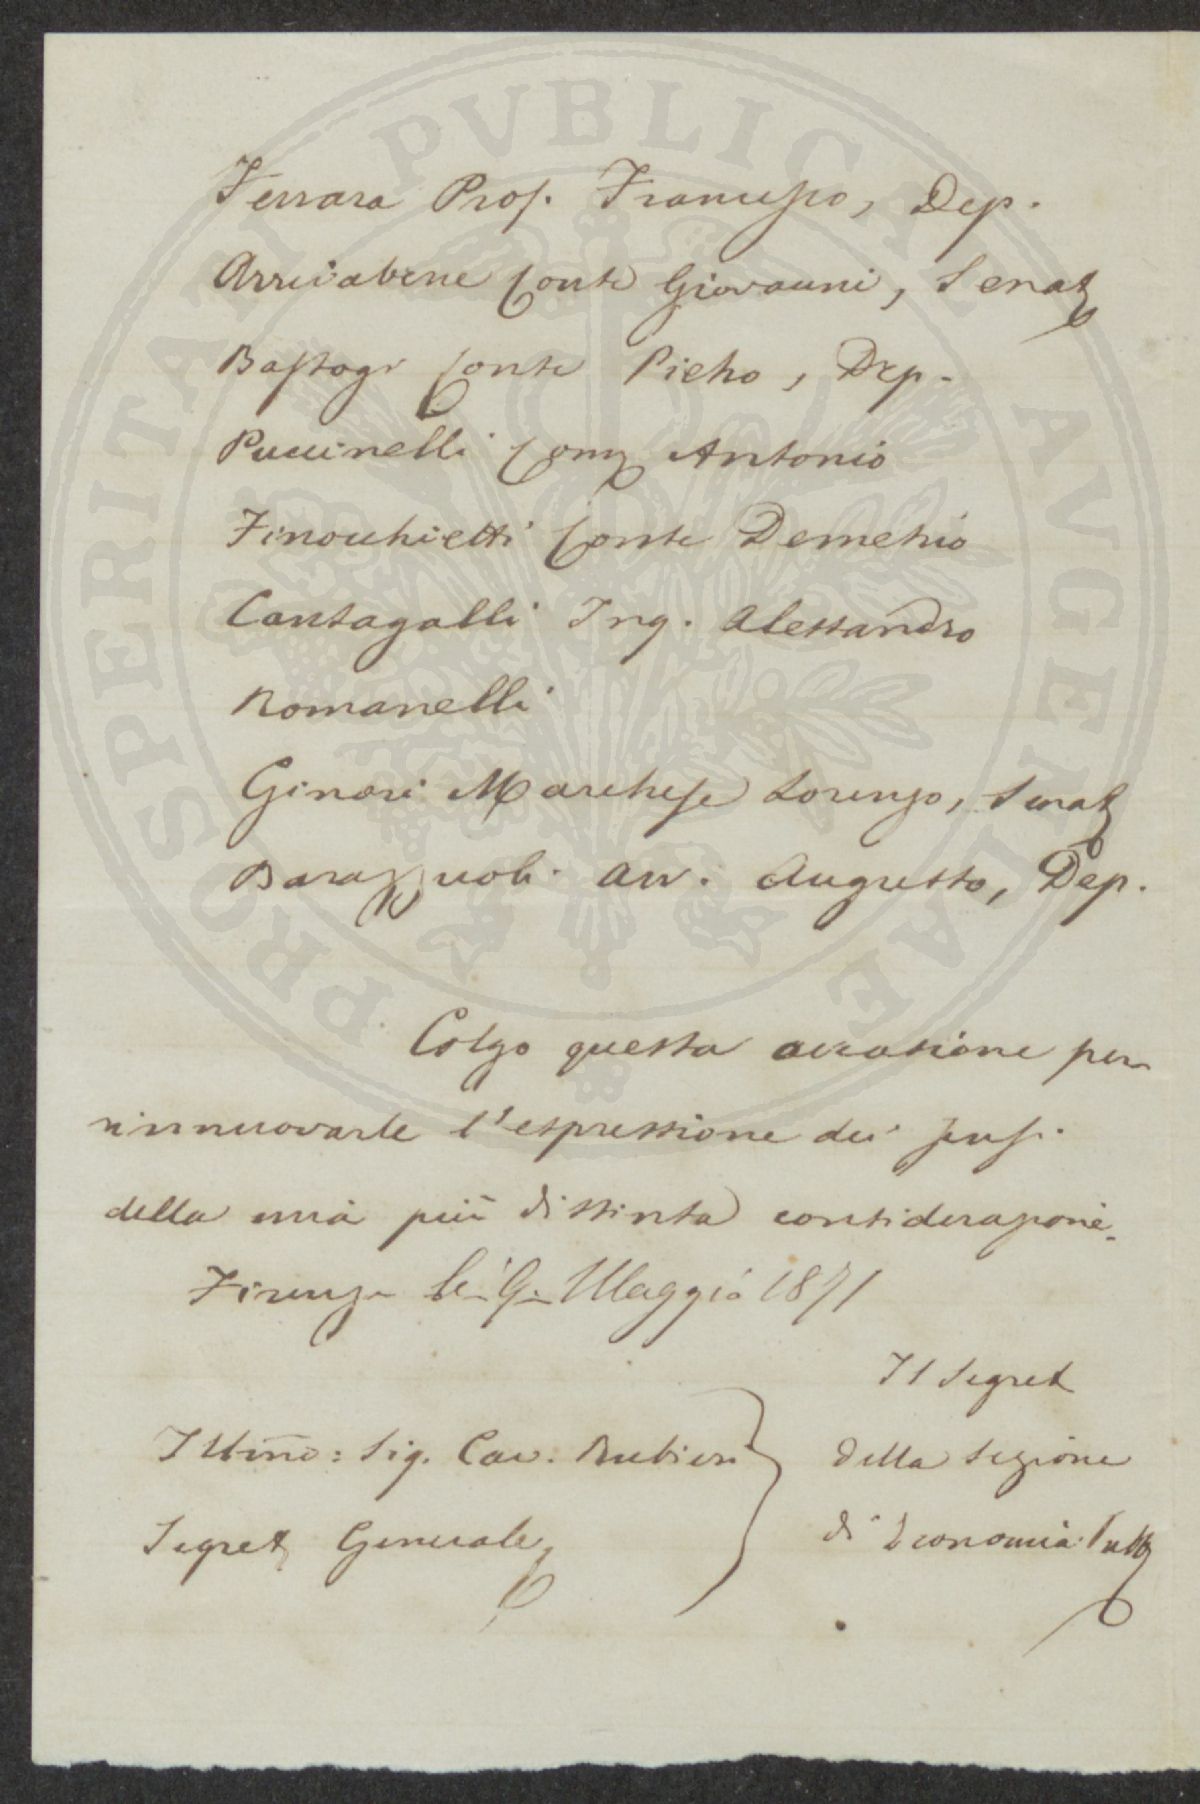 Ferrara Prof. Francesco, Dep.
Arrivabene Conte Giovanni, Senat
Bastogi Conte Pietro, Dep.
Puccinelli Com Antonio
Finocchietti Conte Demetrio
Cantagalli Ing. Alessandro
Romanelli
Ginori Marchese Lorenzo, Senat
Barazzuoli Avv. Augusto, Dep.
Colgo questa occasione per
rinnuovarle l'espressione dei sensi
della mia più distinta considerazione.
Firenze li 9. Maggio 1871
Il Segret
Illmo: Sig. Cav. Rubieri
della Sezione
Segret Generale
di Economia Pubb
PROSPERITATI PVBLICAE AVGENDAE